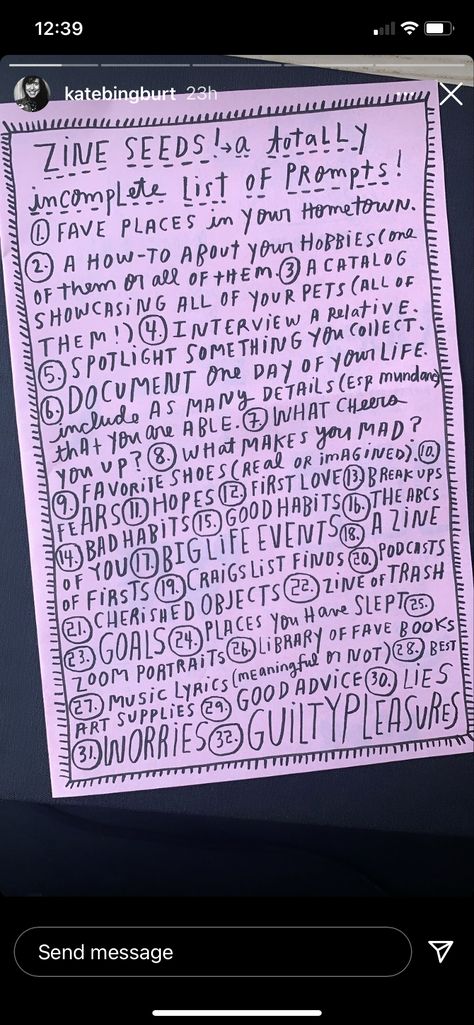 12:39
katebingburt 23h
ZINE SEEDS! → a totally
incomplete List OF PROMPTS!
1. FAVE PLACES in your HOMETOWN.
2. A HOW-TO ABOUT your HOBBIES (one
OF them or all OF THEM. 3. A CATALOG
SHOWCASING ALL OF YOUR PETS (ALL OF
THEM!) 4. INTERVIEW A Relative.
5. SPOTLIGHT SOMETHING YOU COLLECT.
6. DOCUMENT One DAY OF your LIFE.
include AS MANY DETAILS (ESP mundane)
that you are ABLE. 7. WHAT CHEERS
you UP? 8. WHAT MAKES you MAD?
9. FAVORITE SHOES (REAL OR imAGINED). 10.
FEARS 11. HOPES 12. FIRST LOVE 13. BREAKUPS
14. BAD HABITS 15. GOOD HABITS 16. THE ABCs
OF YOU 17. BIG LIFE EVENTS 18. A ZINE
OF FIRSTS 19. CRAIGSLIST FINDS 20. PODCASTS
21. CHERISHED OBJECTS 22. ZINE OF TRASH
23. GOALS 24. PLACES You Have SLEPT 25.
ZOOM PORTRAITS 26. LIBRARY OF FAVE BOOKS
27. MUSIC LYRICS (meaningful or NOT) 28. BEST
ART SUPPLIES 29. GOOD ADVICE 30. LIES
31. WORRIES 32. GUILTY PLEASURES
Send message